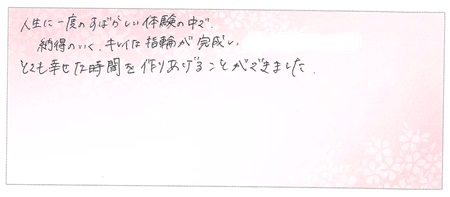 人生に一度のすばらしい体験の中で、
納得のいく、キレイな指輪が完成し、
とても幸せな時間を作りあげることができました。